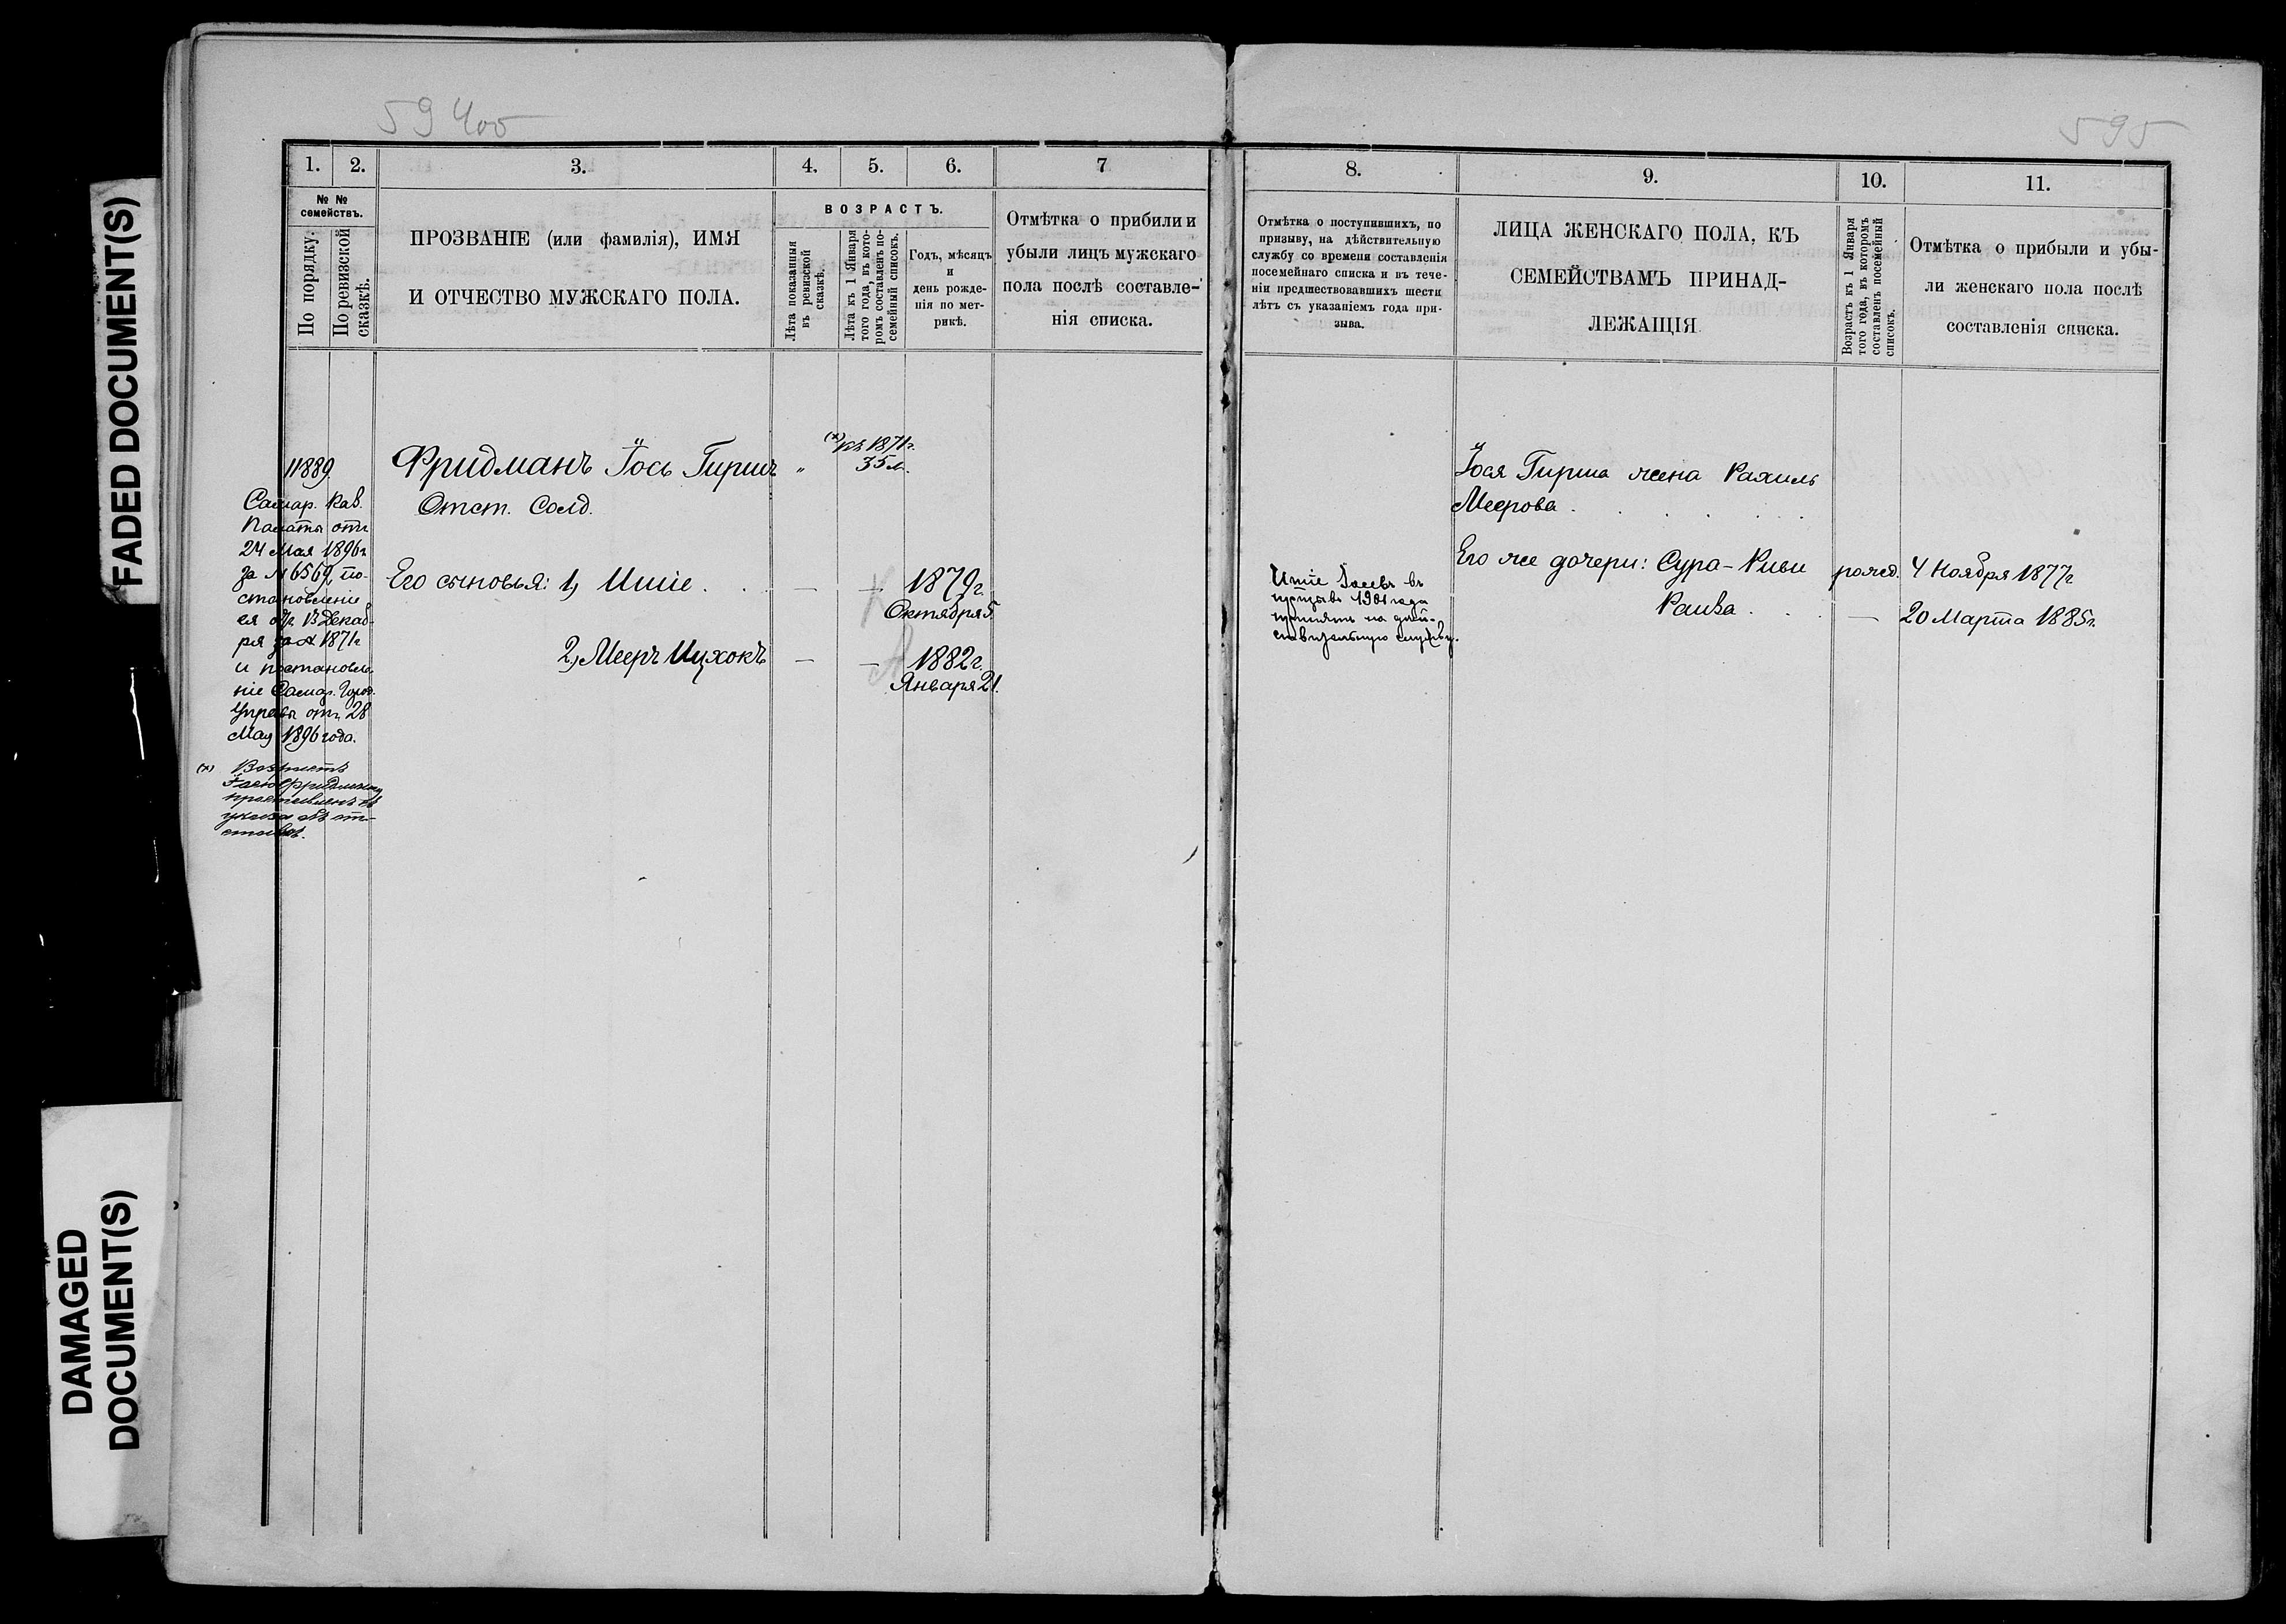 FADED DOCUMENT(S)
DAMAGED
DOCUMENT(S)
594об
595
1.
2.
3.
4.
5.
6.
7
№ №
семействъ.
По порядку.
По ревизской
сказкѣ.
ПРОЗВАНІЕ (или фамилія), ИМЯ
И ОТЧЕСТВО МУЖСКАГО ПОЛА.
ВОЗРАСТЪ.
Лѣта показанныя
въ ревизской
сказкѣ.
Лѣта къ 1 Января
того года, въ кото-
ромъ составленъ по-
семейный списокъ.
Годъ, мѣсяцъ
и
день рожде-
нія по мет-
рикѣ.
Отмѣтка о прибили и
убыли лицъ мужскаго
пола послѣ составле-
нія списка.
11889.
Самар. Каз.
Палаты отъ
24 Мая 1896г
за № 6569, по-
становленіе
ея отъ Декаб-
ря за № 1871г
и постановле-
ніе Самар. Город.
Управы отъ 28
Мая 1896 года.
(х) Возрастъ
Фридману
указа объ от-
ставкѣ.
Фридманъ Іось Гиршъ
Отст. Солд.
"
(х) къ 1871г.
35 л.
Его сыновья: 1, Ишіе . . . — — 1879г.
Октября 5.
2, Мееръ Ицхокъ — — 1882г.
Января 21.
8.
9.
10.
11.
Отмѣтка о поступившихъ, по
призыву, на дѣйствительную
службу со времени составленія
посемейнаго списка и въ тече-
ніи предшествовавшихъ шести
лѣтъ съ указаніемъ года при-
зыва.
ЛИЦА ЖЕНСКАГО ПОЛА, КЪ
СЕМЕЙСТВАМЪ ПРИНАД-
ЛЕЖАЩІЯ
Возрастъ къ 1 Января
того года, въ которомъ
составленъ посемейный
списокъ.
Отмѣтка о прибыли и убы-
ли женскаго пола послѣ
составленія списка.
Ишіе Іосевъ въ
призывъ 1901 года
принятъ на дѣй-
ствительную службу.
Іося Гирша жена Рахиль
Меерова . . . . .
Его же дочери: Сура-Риви рожд. 4 Ноября 1877г
Раива . . . — 20 Марта 1885г.